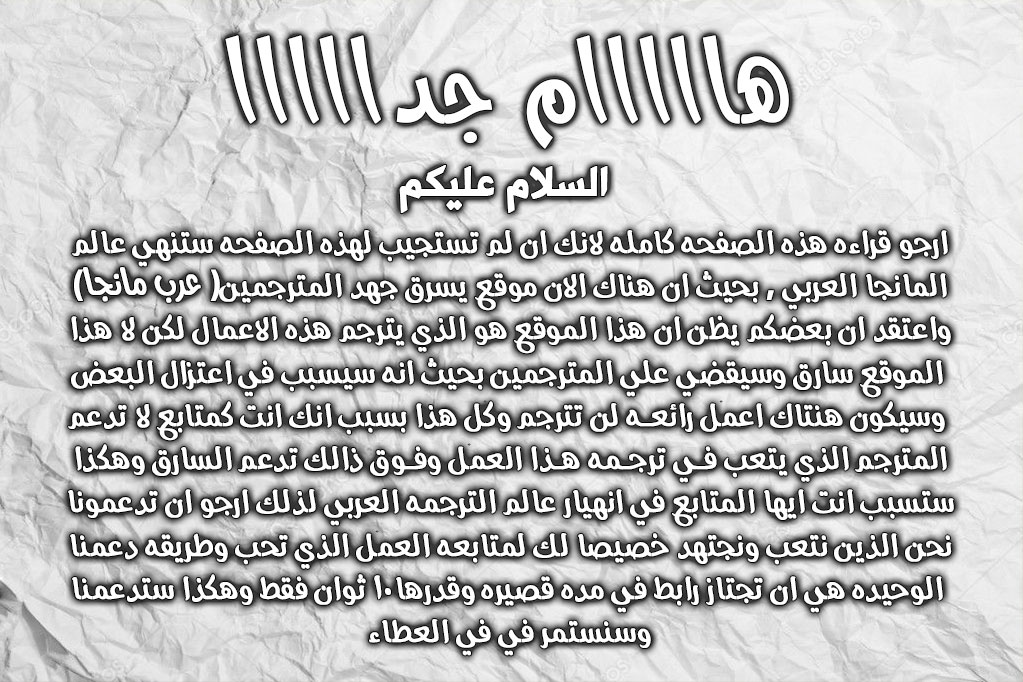 هاااااام جدااااااا
السلام عليكم
ارجو قراءه هذه الصفحه كامله لانك ان لم تستجيب لهذه الصفحه ستنهي عالم
المانجا العربي , بحيث ان هناك الان موقع يسرق جهد المترجمين( عرب مانجا)
واعتقد ان بعضكم يظن ان هذا الموقع هو الذي يترجم هذه الاعمال لكن لا هذا
الموقع سارق وسيقضي علي المترجمين بحيث انه سيسبب في اعتزال البعض
وسيكون هنتاك اعمل رائعه لن تترجم وكل هذا بسبب انك انت كمتابع لا تدعم
المترجم الذي يتعب في ترجمه هذا العمل وفوق ذالك تدعم السارق وهكذا
ستسبب انت ايها المتابع في انهيار عالم الترجمه العربي لذلك ارجو ان تدعمونا
نحن الذين نتعب ونجتهد خصيصا لك لمتابعه العمل الذي تحب وطريقه دعمنا
الوحيده هي ان تجتاز رابط في مده قصيره وقدرها ١٠ ثوان فقط وهكذا ستدعمنا
وسنستمر في في العطاء